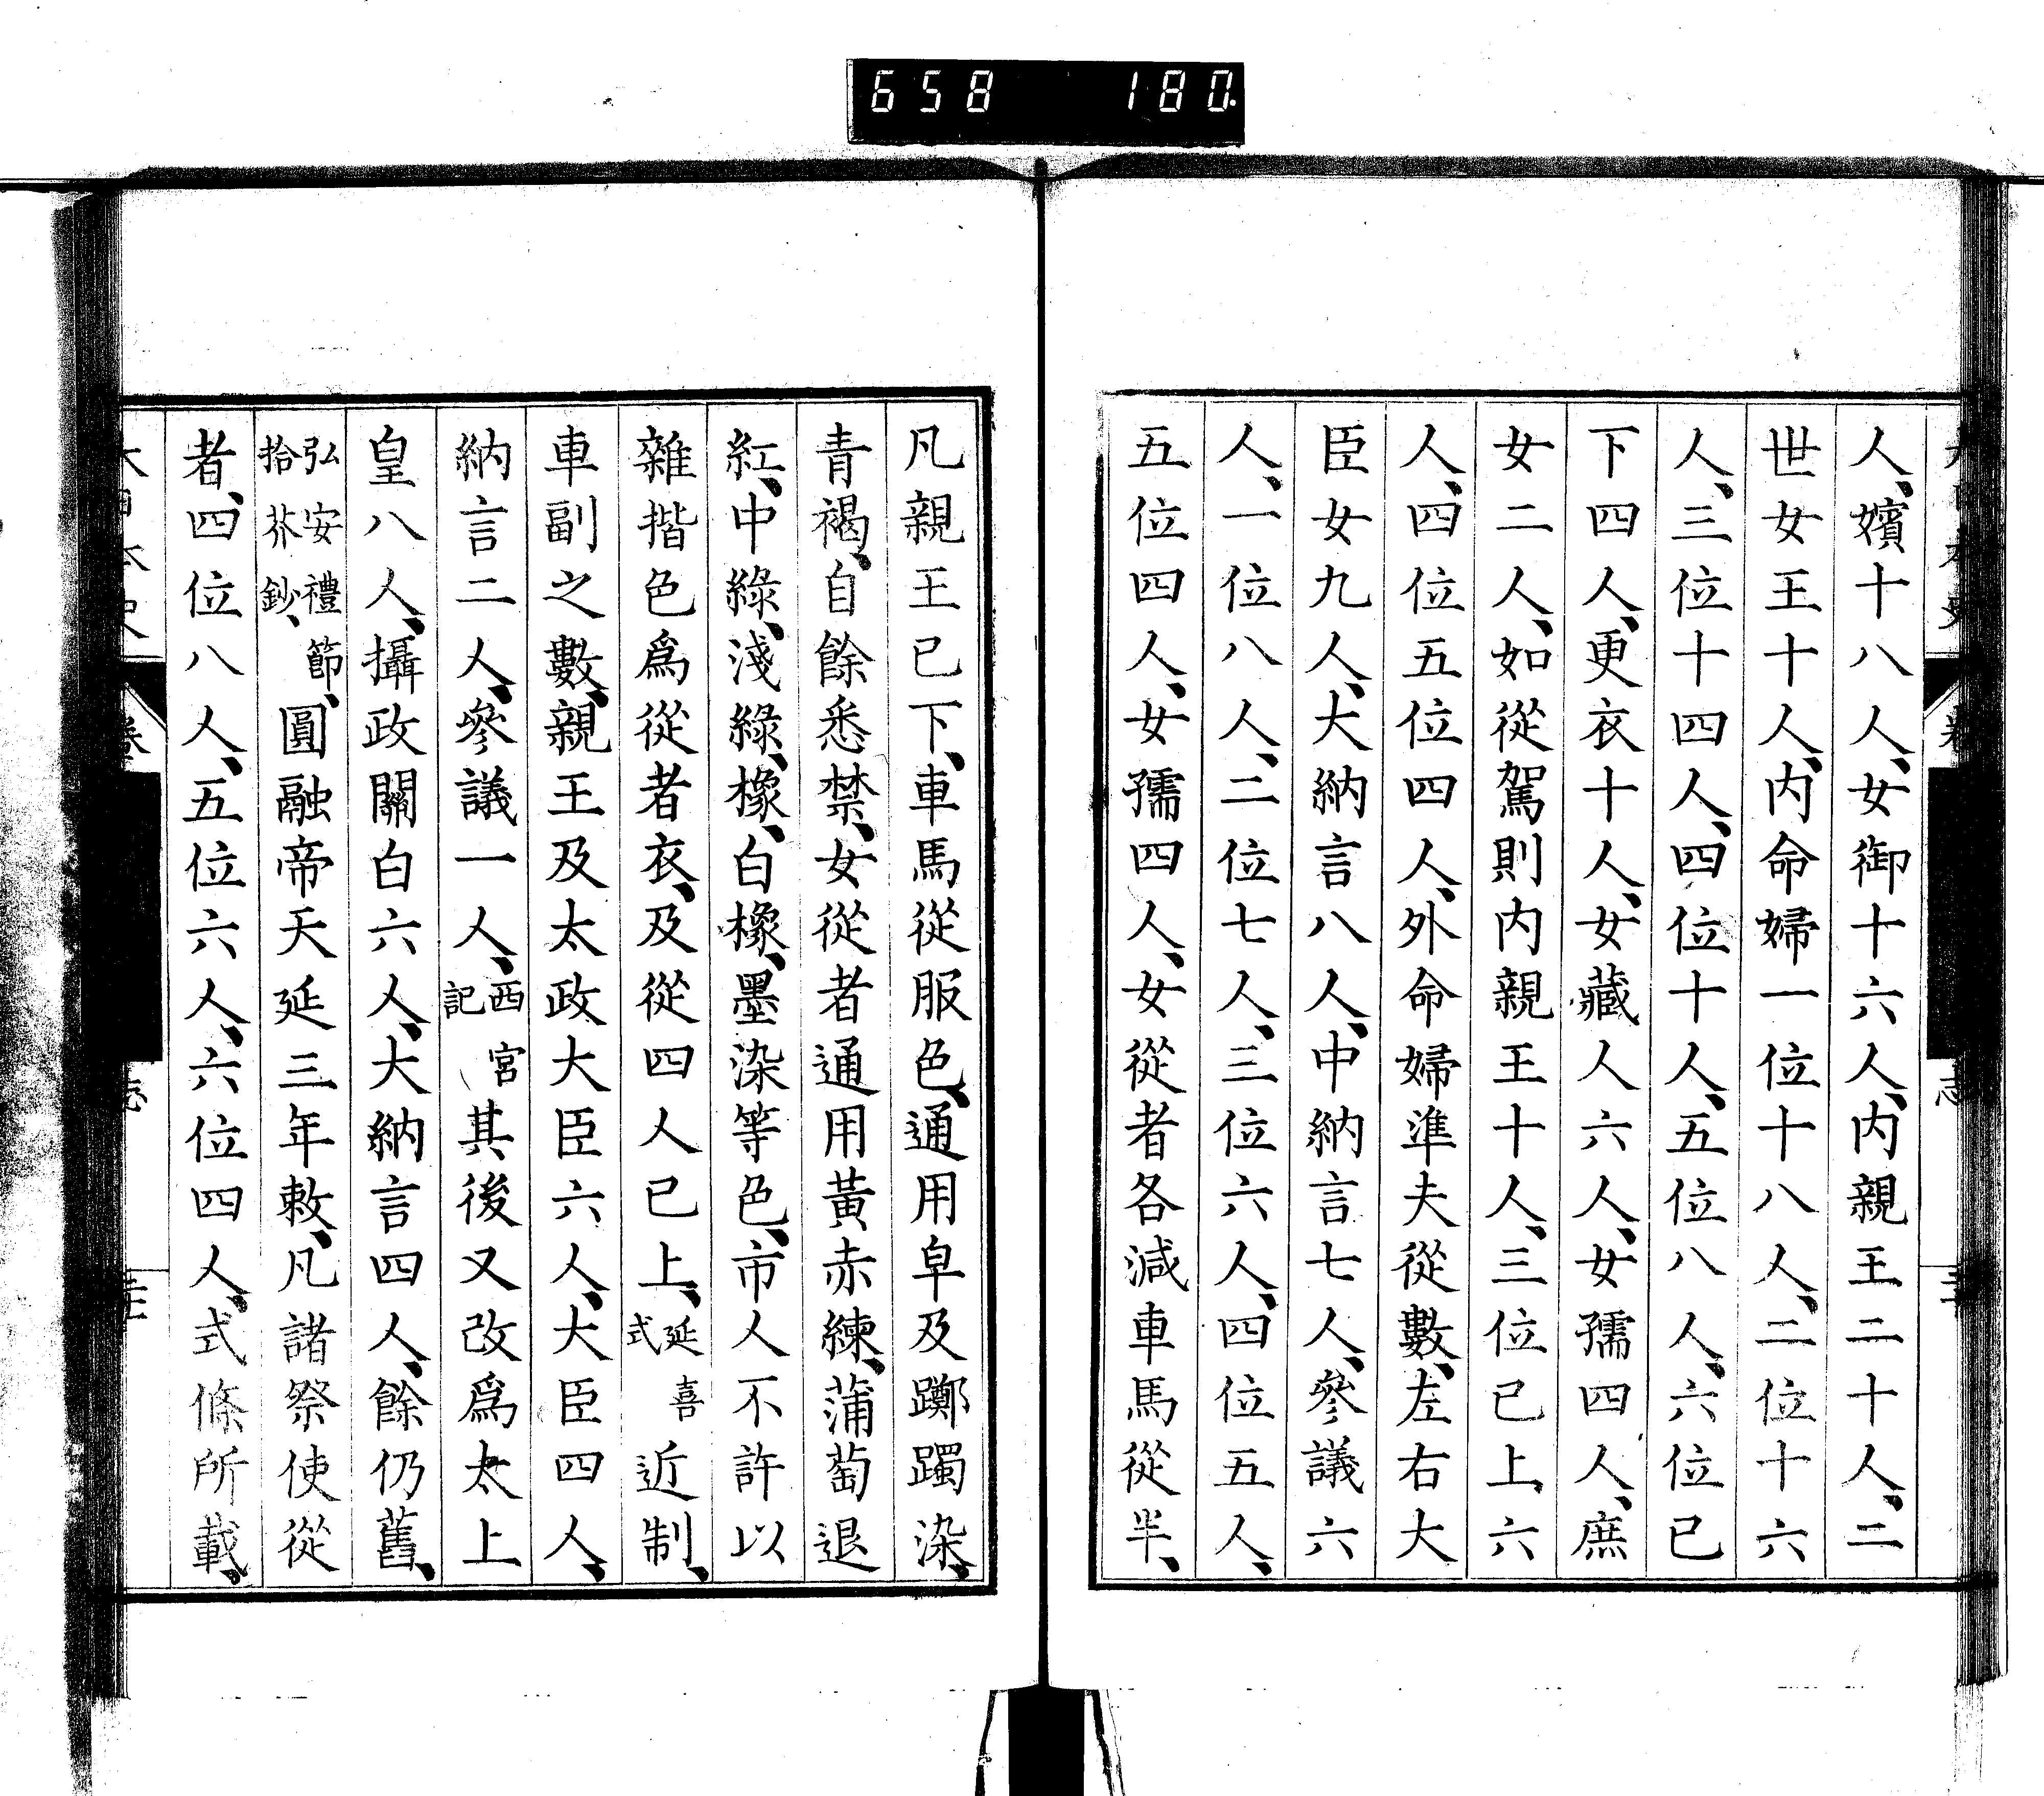 658 180
人、嬪十八人、女御十六人、内親王二十人、二
世女王十人、内命婦一位十八人、二位十六
人、三位十四人、四位十人、五位八人、六位已
下四人、更衣十人、女藏人六人、女孺四人、庶
女二人、如從駕則内親王十人、三位已上六
人、四位五位四人、外命婦準夫從數、左右大
臣女九人、大納言八人、中納言七人、參議六
人、一位八人、二位七人、三位六人、四位五人、
五位四人、女孺四人、女從者各減車馬從半、
凡親王已下、車馬從服色、通用皁及躑躅染、
青褐、自餘悉禁、女從者通用黃赤練、蒲萄退
紅、中綠、淺綠、橡、白橡、墨染等色、市人不許以
雜揩色爲從者衣、及從四人已上、延喜式近制、
車副之數、親王及太政大臣六人、大臣四人、
納言二人、參議一人、西宮記其後又改爲太上
皇八人、攝政關白六人、大納言四人、餘仍舊、
弘安禮節、拾芥鈔、圓融帝天延三年敕、凡諸祭使從
者、四位八人、五位六人、六位四人、式條所載、